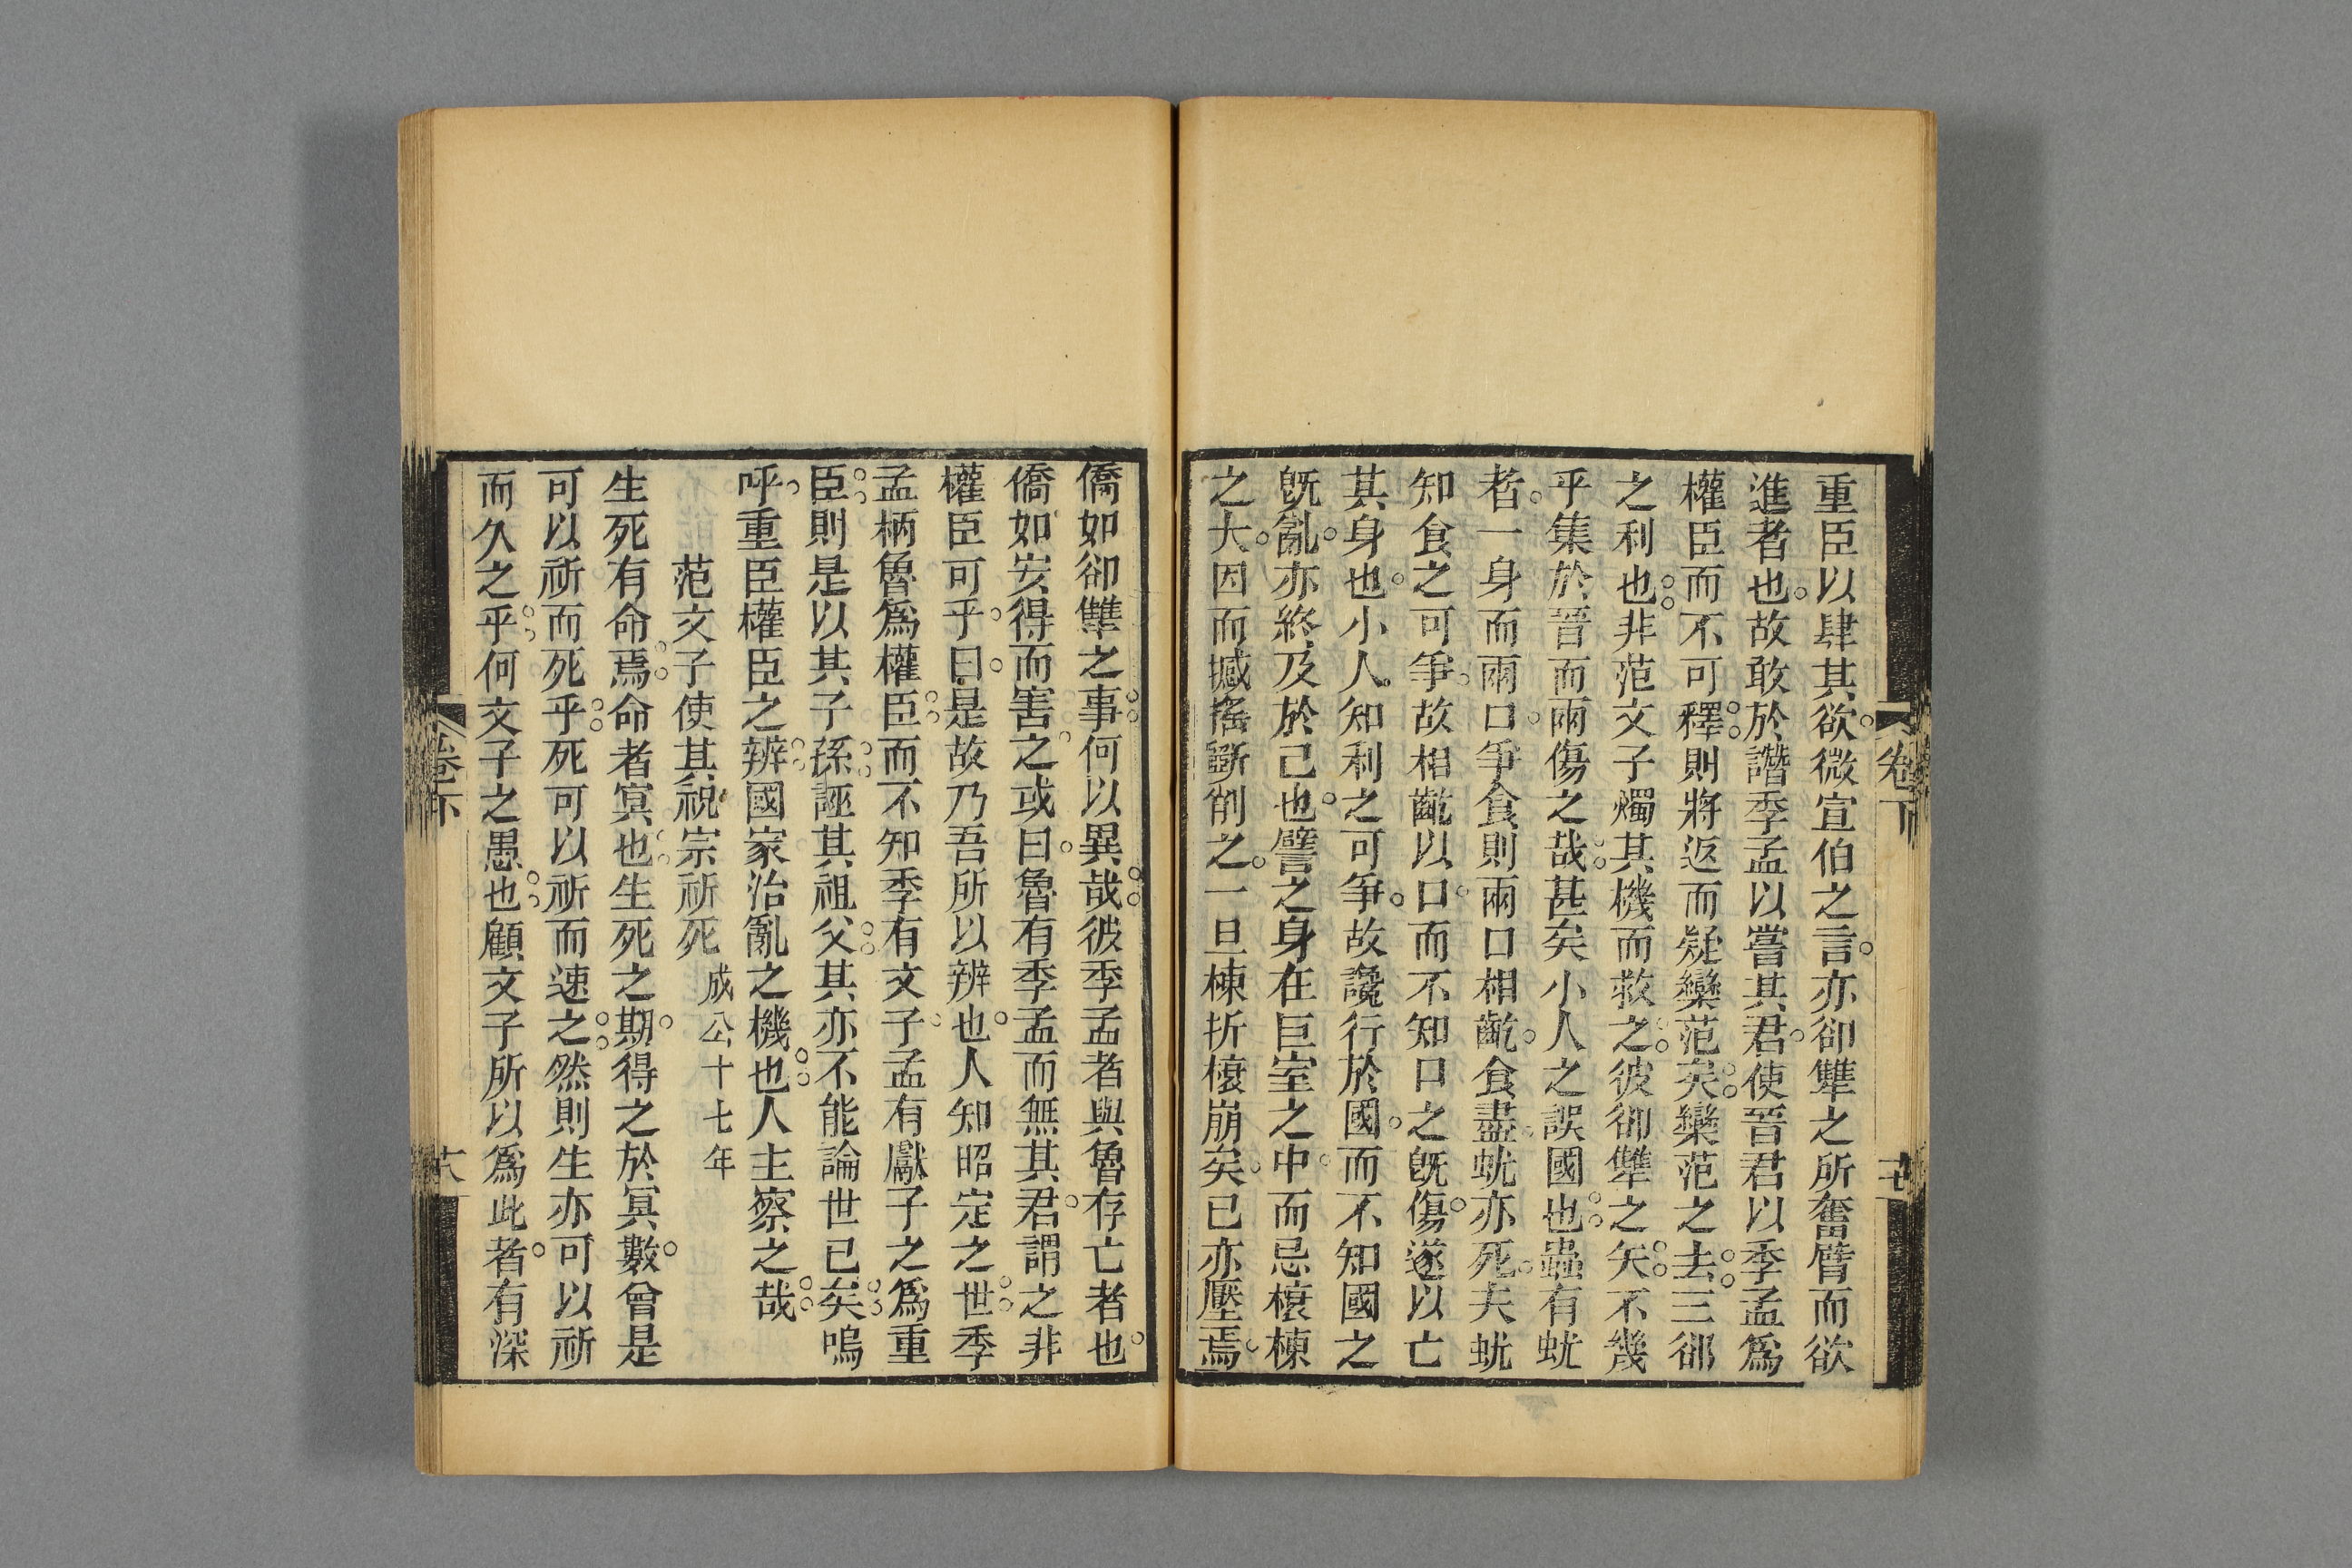 重臣以肆其欲微宣伯之言亦卻犨之所奮臂而欲
進者也故敢於譖季孟以嘗其君使晉君以季孟爲
權臣而不可釋則將返而疑欒范矣欒范之去三郤
之利也非范文子燭其機而救之彼卻犨之矢不幾
乎集於晉而兩傷之哉甚矣小人之誤國也蟲有蚘
者一身而兩口爭食則兩口相齕食盡蚘亦死夫蚘
知食之可爭故相齕以口而不知口之旣傷遂以亡
其身也小人知利之可爭故讒行於國而不知國之
旣亂亦終及於己也譬之身在巨室之中而忌榱棟
之大因而撼搖斲削之一旦棟折榱崩矣已亦壓焉
卷下
僑如卻犨之事何以異哉彼季孟者與魯存亡者也
僑如安得而害之或曰魯有季孟而無其君謂之非
權臣可乎曰是故乃吾所以辨也人知昭定之世季
孟柄魯爲權臣而不知季有文子孟有獻子之爲重
臣則是以其子孫誣其祖父其亦不能論世已矣嗚
呼重臣權臣之辨國家治亂之機也人主察之哉
范文子使其祝宗祈死 成公十七年
生死有命焉命者冥也生死之期得之於冥數曾是
可以祈而死乎死可以祈而速之然則生亦可以祈
而久之乎何文子之愚也顧文子所以爲此者有深
卷下
十八